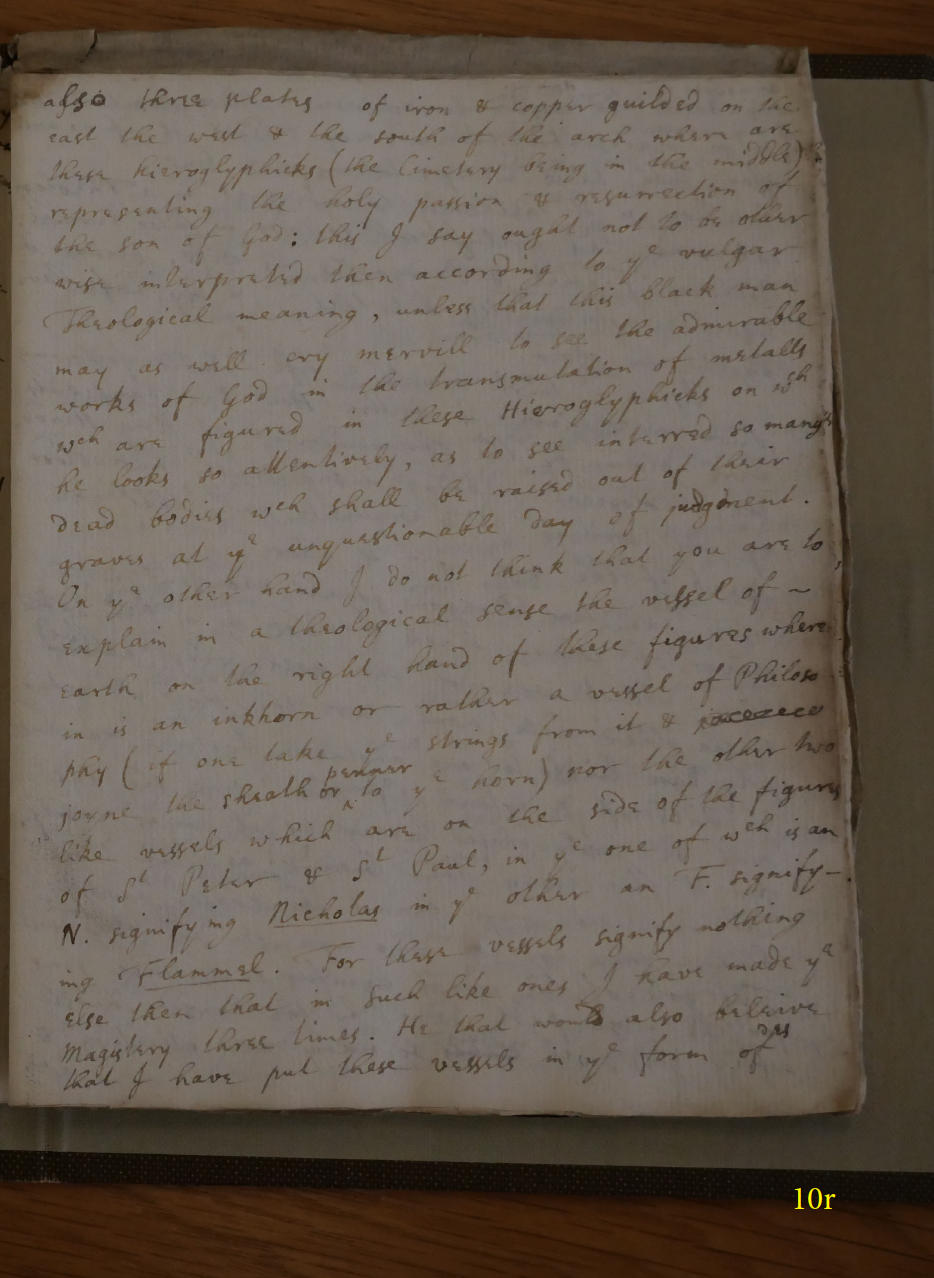 also three plates of iron & copper guilded on the
east the west & the south of the arch where are
these Hieroglyphicks (the Cimetery being in the middle)
representing the holy passion & resurrection of
the son of God: this I say ought not to be other
wise interpreted then according to yͤ vulgar
Theological meaning, unless that this black man
may as well cry mervill to see the admirable
works of God in the transmutation of metalls
wch are figured in these Hieroglyphicks on wch
he looks so attentively, as to see interred so many
dead bodies wch shall be raised out of their
graves at yͤ unquestionable day of judgment.
On yͤ other hand I do not think that you are to
explain in a theological sense the vessel of ~
earth on the right hand of these figures where
in is an inkhorn or rather a vessel of Philoso
phy (if one take yͤ strings from it &
joyne the sheath or penner to yͤ horn) nor the other two
like vessels which are on the side of the figures
of St Peter & St Paul, in yͤ one of wch is an
N. signifying Nicholas in yͤ other an F. signify-
ing Flammel. For these vessels signify nothing
else then that in such like ones I have made yͤ
Magistery three times. He that would also beleive
that I have put these vessels in yͤ form of
10r